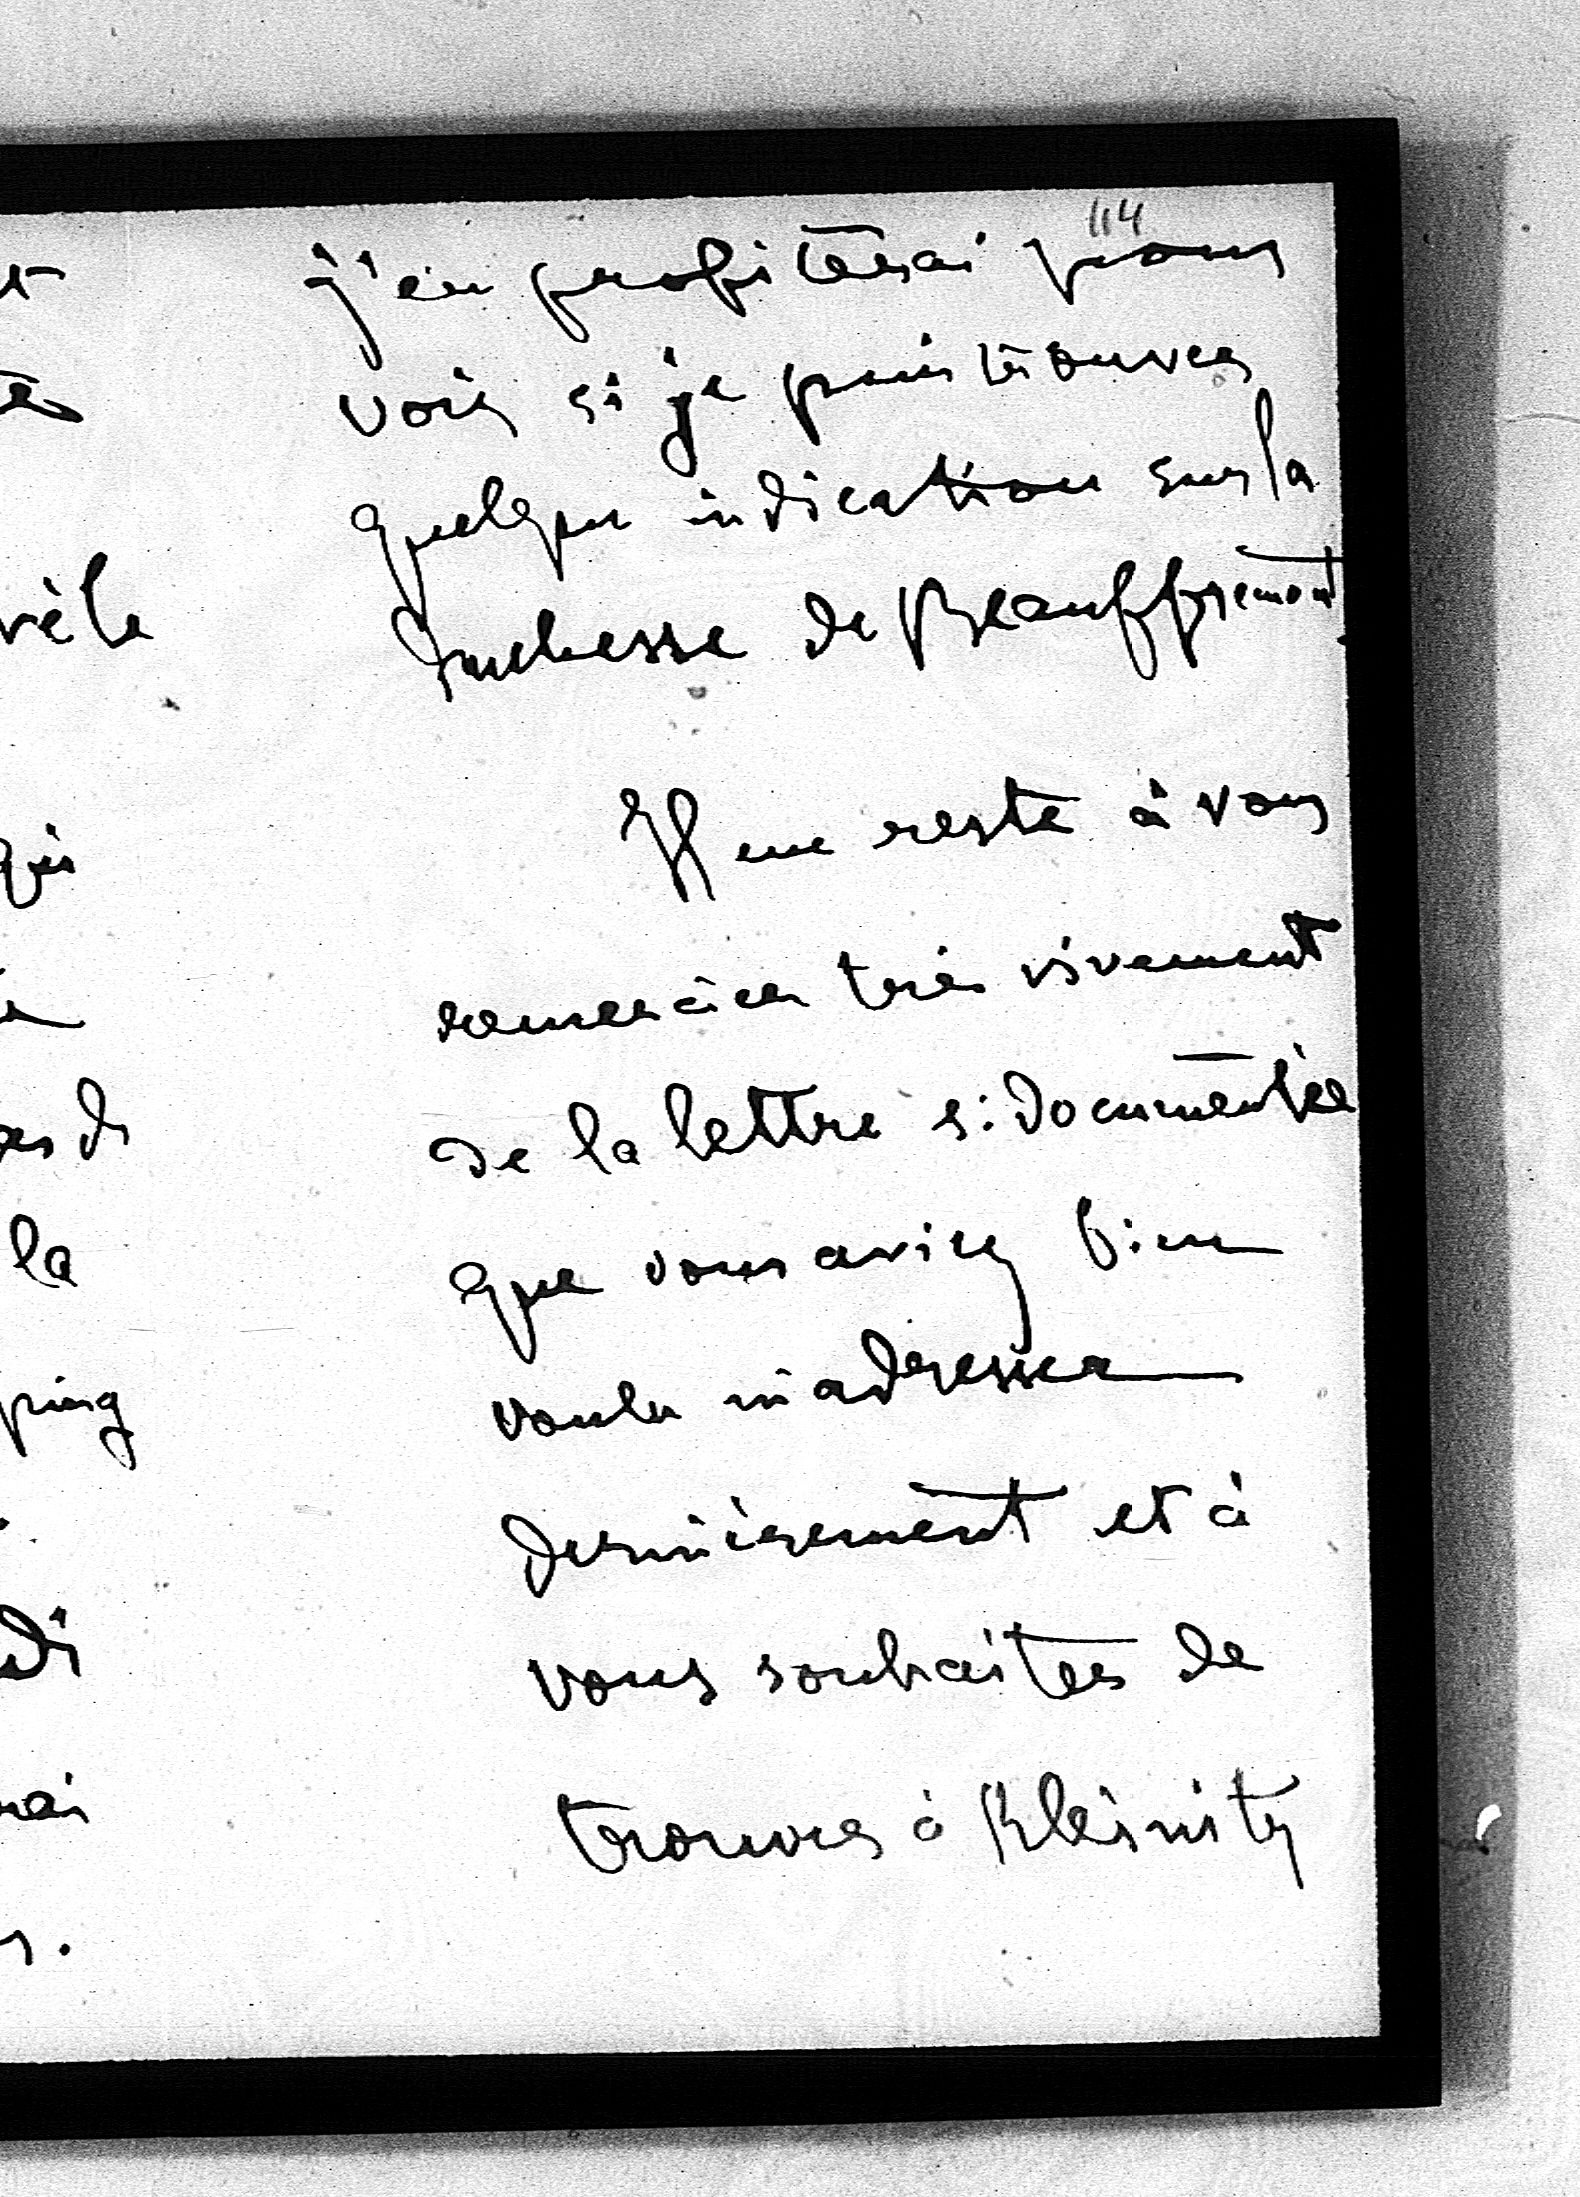 114
j'en profiterai pour
voir si je puis trouver
quelque indication sur la
duchesse de Beauffremont.
Il me reste à vous
remercier très vivement
de la lettre si documentée
que vous aviez bien
voulu m'adresser
dernièrement et à
vous souhaiter de
trouver à Kleinitz
vèle
qui
la
ping